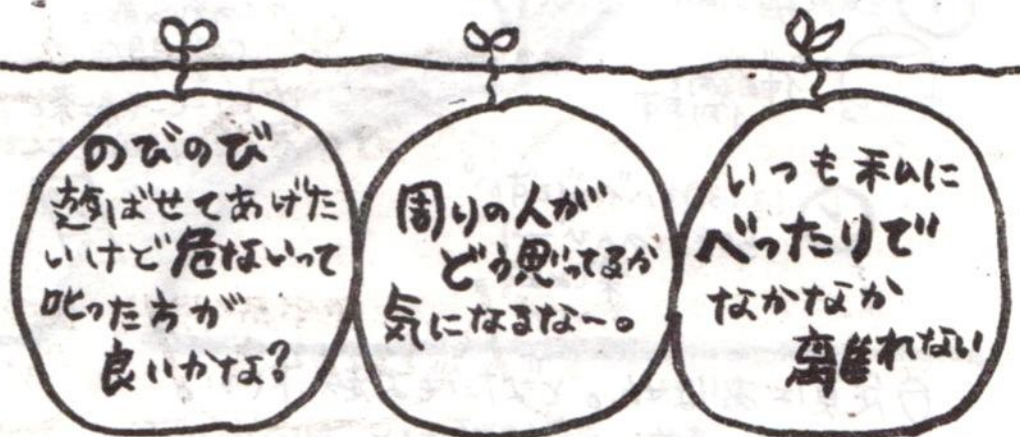 のびのび
遊ばせてあげた
いけど危ないって
叱った方が
良いかな?
周りの人が
どう思ってるか
気になるなー。
いつも私に
べったりで
なかなか
離れない